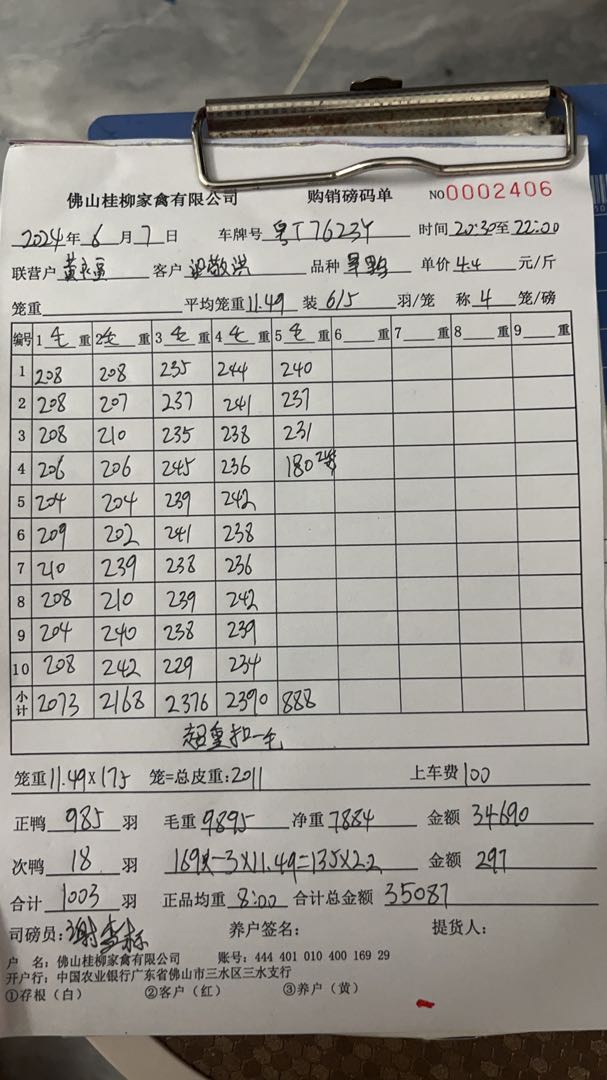 佛山桂柳家禽有限公司 购销磅码单 NO 0002406
2024年 6 月 7 日 车牌号 粤T7623Y 时间 20:30至 22:00
联营户 客户 梁敬洪 品种 单价 4.4 元/斤
笼重 平均笼重 11.49 装 6/5 羽/笼 称 4 笼/磅
编号 1 毛 重 2 毛 重 3 毛 重 4 毛 重 5 毛 重 6 重 7 重 8 重 9 重
1 208 208 235 244 240
2 208 207 237 241 237
3 208 210 235 238 231
4 206 206 245 236 180
5 204 204 239 242
6 209 202 241 238
7 210 239 238 236
8 208 210 239 242
9 204 240 238 239
10 208 242 229 234
小计 2073 2168 2376 2390 888
超重扣一毛
笼重 11.49×175 笼=总皮重: 2011 上车费 100
正鸭 985 羽 毛重 9895 净重 7884 金额 34690
次鸭 18 羽 169斤-3×11.49=135×2.2 金额 297
合计 1003 羽 正品均重 8:00 合计总金额 35087
司磅员: 养户签名: 提货人:
户 名: 佛山桂柳家禽有限公司 账号: 444 401 010 400 169 29
开户行: 中国农业银行广东省佛山市三水区三水支行
①存根（白） ②客户（红） ③养户（黄）